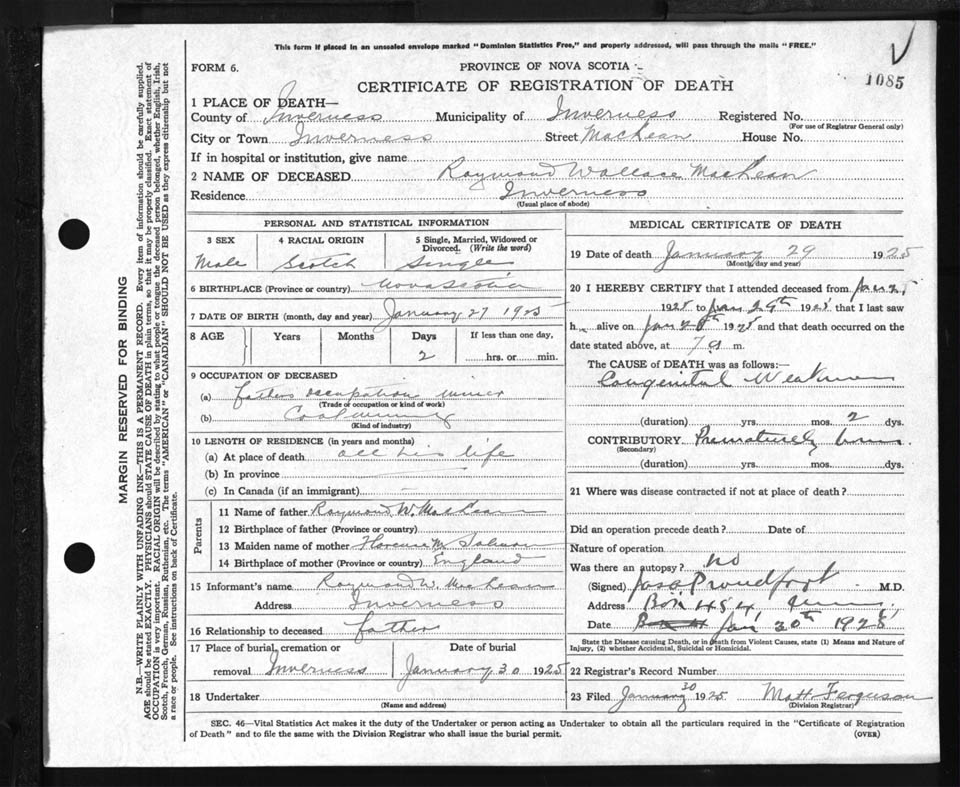 This form if placed in an unsealed envelope marked "Dominion Statistics Free," and properly addressed, will pass through the mails "FREE."
FORM 6.
PROVINCE OF NOVA SCOTIA
1085
CERTIFICATE OF REGISTRATION OF DEATH
1 PLACE OF DEATH—
County of Inverness Municipality of Inverness Registered No.
(For use of Registrar General only)
City or Town Inverness Street MacLean House No.
If in hospital or institution, give name
2 NAME OF DECEASED Raymond Wallace MacLean
Residence Inverness
(Usual place of abode)
PERSONAL AND STATISTICAL INFORMATION
3 SEX 4 RACIAL ORIGIN 5 Single, Married, Widowed or Divorced. (Write the word)
Male Scotch Single
6 BIRTHPLACE (Province or country) Nova Scotia
7 DATE OF BIRTH (month, day and year) January 27 1925
8 AGE Years Months Days If less than one day,
2 hrs. or min.
9 OCCUPATION OF DECEASED
(a) fathers occupation miner
(Trade or occupation or kind of work)
(b) Coal mining
(Kind of industry)
10 LENGTH OF RESIDENCE (in years and months)
(a) At place of death all his life
(b) In province
(c) In Canada (if an immigrant)
Parents
11 Name of father Raymond W. MacLean
12 Birthplace of father (Province or country)
13 Maiden name of mother Florence M.
14 Birthplace of mother (Province or country) England
15 Informant's name Raymond W. MacLean
Address Inverness
16 Relationship to deceased father
17 Place of burial, cremation or removal Inverness
Date of burial
January 30 1925
18 Undertaker
(Name and address)
MEDICAL CERTIFICATE OF DEATH
19 Date of death January 29 1925
(Month, day and year)
20 I HEREBY CERTIFY that I attended deceased from Jan 25
1925 to Jan 29th 1925 that I last saw
h alive on Jan 1925 and that death occurred on
date stated above, at 7 a m.
The CAUSE of DEATH was as follows:—
Congenital Weakness
(duration) yrs. mos. 2 dys.
CONTRIBUTORY Prematurely born
(Secondary)
(duration) yrs. mos. dys.
21 Where was disease contracted if not at place of death?
Did an operation precede death? Date of
Nature of operation
Was there an autopsy? no
(Signed) Jas Proudfoot M.D.
Address Box 454
Date Jan 30th 1925
State the Disease causing Death, or in death from Violent Causes, state (1) Means and Nature of Injury, (2) whether Accidental, Suicidal or Homicidal.
22 Registrar's Record Number
23 Filed January 30 1925 Matt Ferguson
(Division Registrar)
SEC. 46—Vital Statistics Act makes it the duty of the Undertaker or person acting as Undertaker to obtain all the particulars required in the "Certificate of Registration
of Death" and to file the same with the Division Registrar who shall issue the burial permit. (OVER)
MARGIN RESERVED FOR BINDING
N.B.—WRITE PLAINLY WITH UNFADING INK—THIS IS A PERMANENT RECORD. Every item of information should be carefully supplied.
AGE should be stated EXACTLY. PHYSICIANS should STATE CAUSE OF DEATH in plain terms, so that it may be properly classified. Exact statement of
OCCUPATION is very important. RACIAL ORIGIN will be described by stating to what people or tongue the deceased person belonged, whether English, Irish,
Scotch, French, German, Russian, Ruthenian, etc. The terms "AMERICAN" or "CANADIAN" SHOULD NOT BE USED as they express citizenship but not
a race or people. See instructions on back of Certificate.